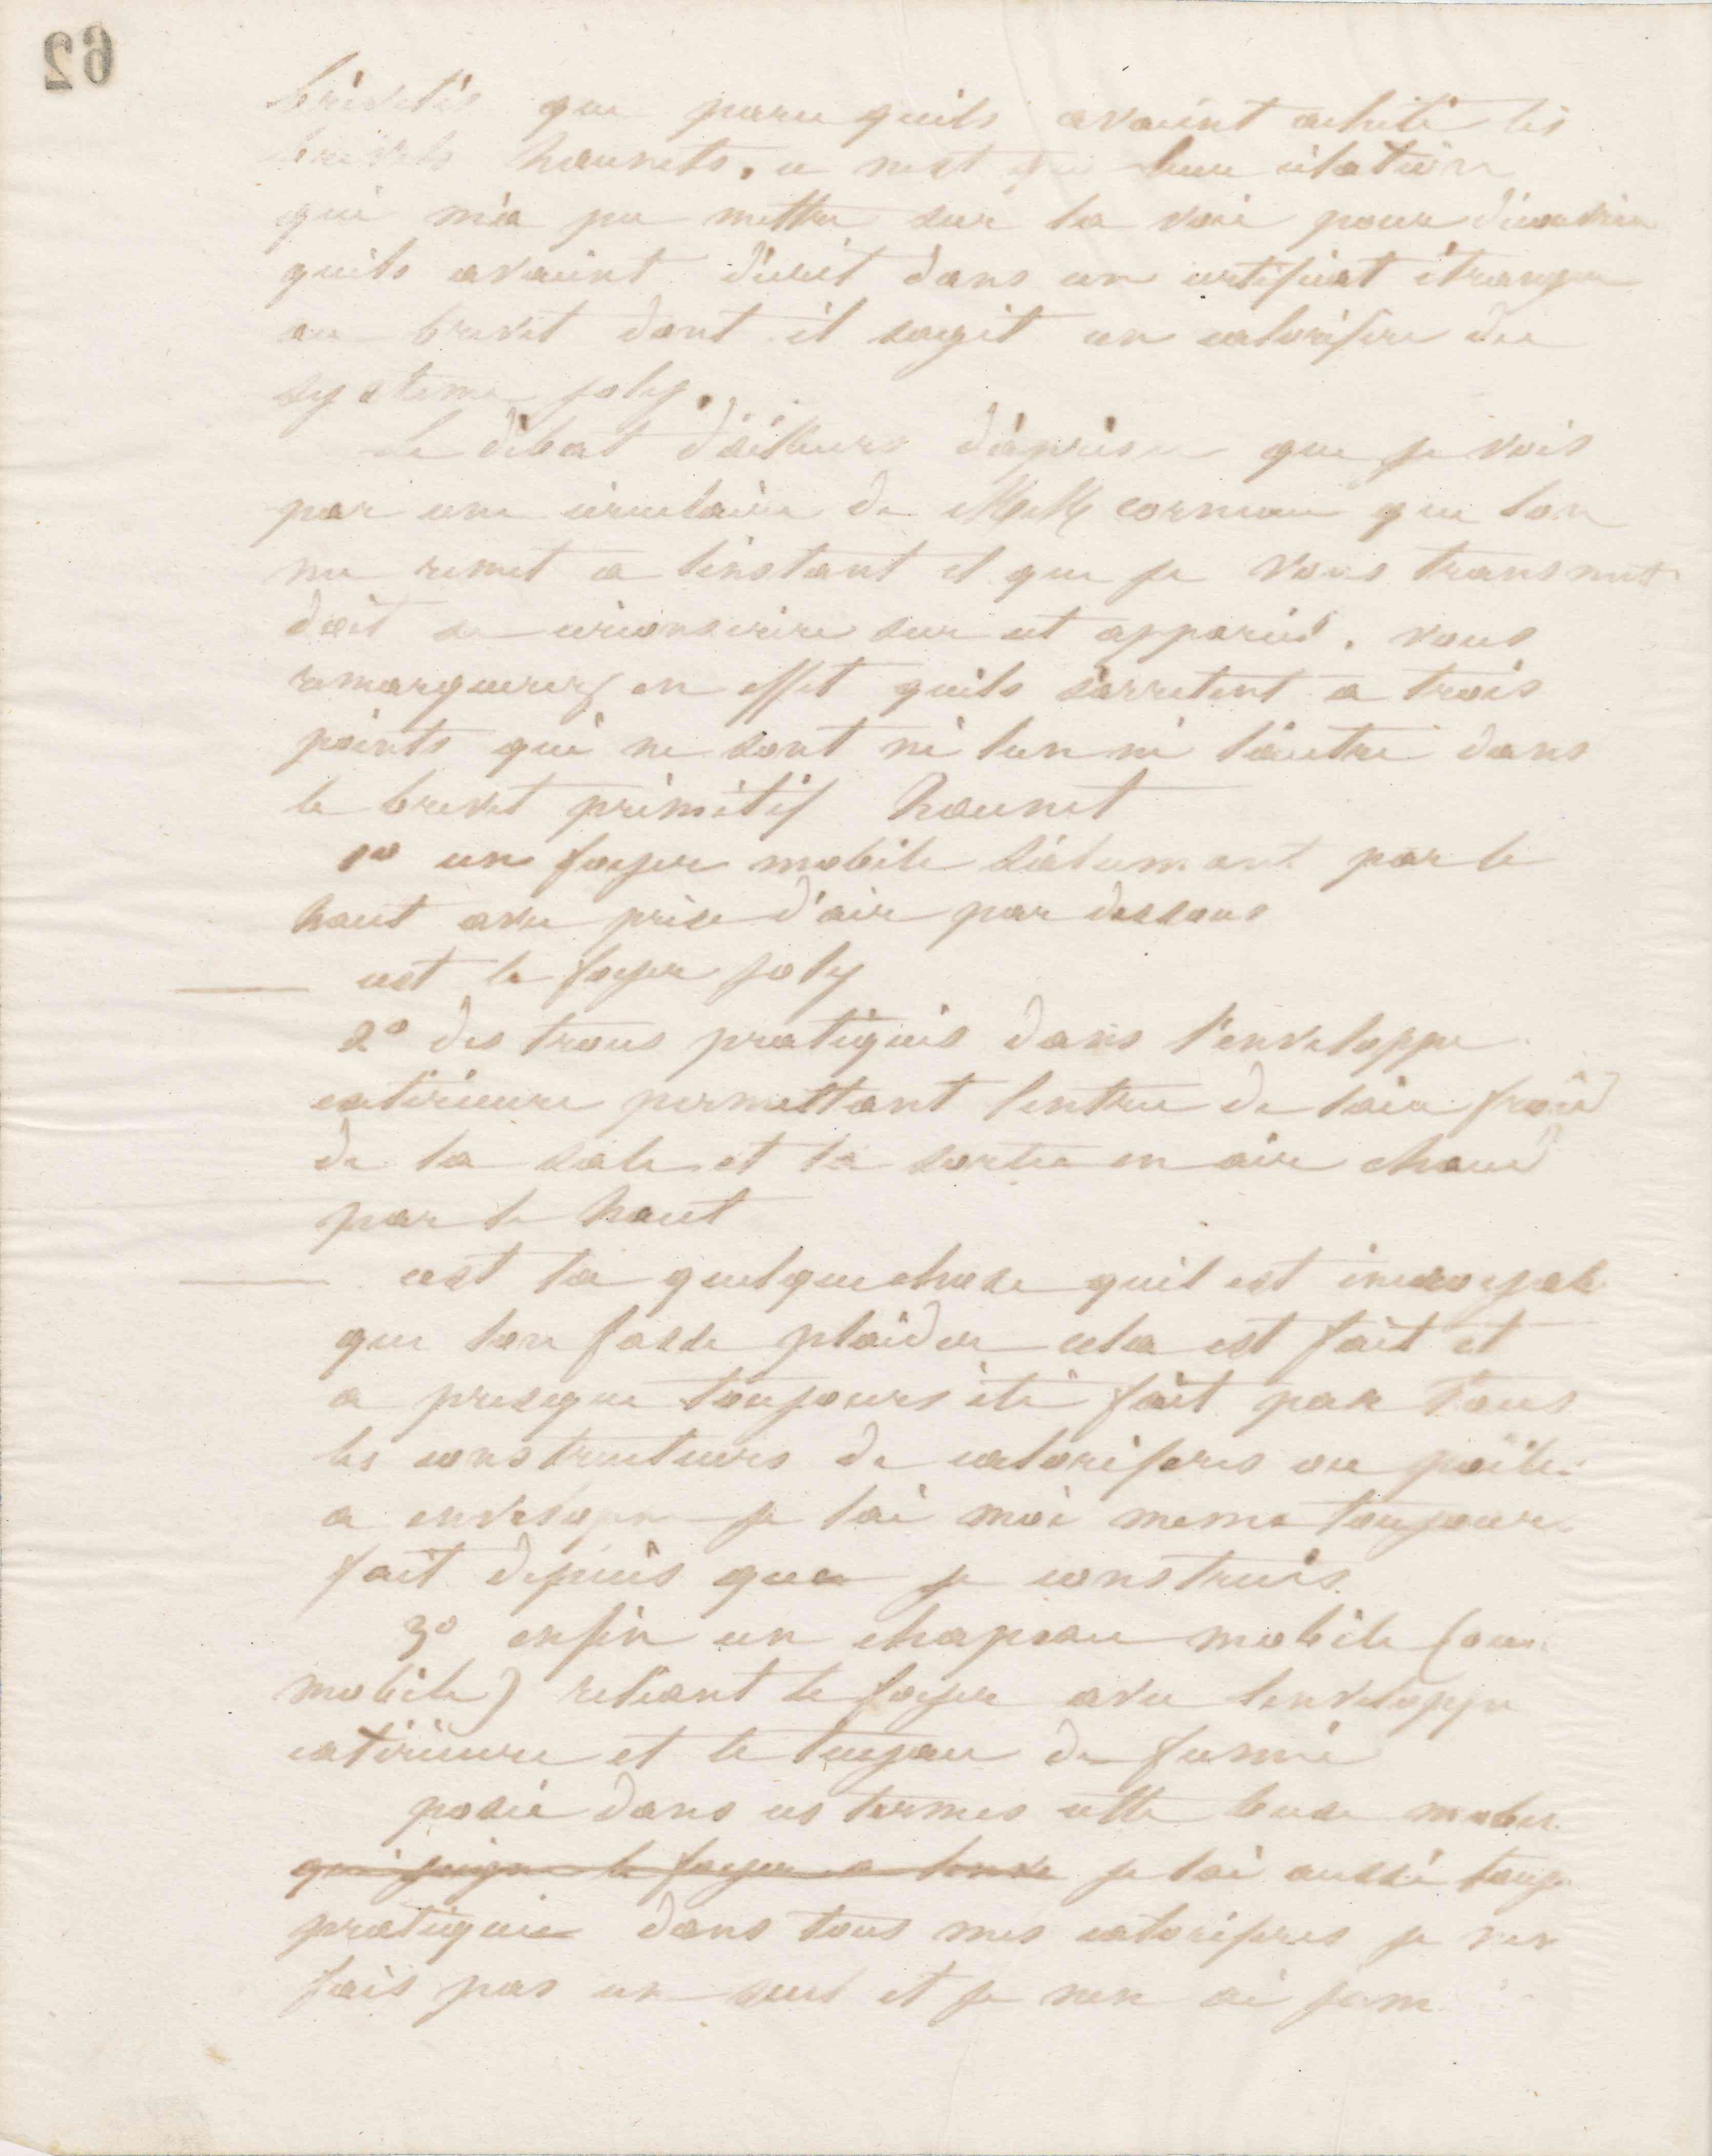 62
brevetés que parce quils avaient acheté les
brevets haunets. ce nest que leur citation
qui m'a pu mettre sur la voie pour découvrir
quils avaient décrit dans un certificat étranger
au brevet dont il sagit un calorifere du
systeme joly.
Le débat d'ailleurs d'après ce que je vois
par une circulaire de MM corneau que lon
me remet a linstant et que je vous transmet
doit se circonscrire sur cet appareil. vous
remarquerez en effet quils sarretent a trois
points qui ne sont ni lun ni l'autre dans
le brevet primitif haunet
1o un foyer mobile s'alumant par le
haut avec prise d'air par dessous
cest le foyer joly
2o des trous pratiqués dans l'enveloppe
extérieure permettant lentree de lair froid
de la sale et la sortie en air chaud
par le haut
cest la quelquechose quil est incroyable
que lon fasse plaider cela est fait et
a presque toujours été fait par tous
les constructeurs de caloriferes ou poële
a envelope je lai moi meme toujour
fait depuis que je construis
3o enfin un chapeau mobile (ou
mobile) reliant le foyer avec lenveloppe
extérieure et le tuyau de fumé
posée dans ces termes cette buse mobi
qui joigne le foyer a je lai aussi touj
pratiquée dans tous mes caloriferes je nen
fais pas un seul et je nen ai jam